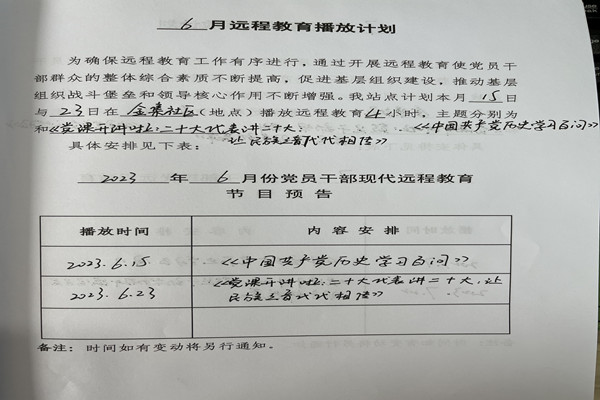 6 月远程教育播放计划
为确保远程教育工作有序进行，通过开展远程教育使党员干
部群众的整体综合素质不断提高，促进基层组织建设，推动基层
组织战斗堡垒和领导核心作用不断增强。我站点计划本月 15 日
与 23 日在 金桑社区（地点）播放远程教育 4 小时，主题分别为
和《党课开讲啦：二十大代表讲二十大： 《中国共产党历史学习百问》
让民族之音代代相传》
具体安排见下表：
2023 年 6 月份党员干部现代远程教育
节目预告
播放时间 内容安排
2023.6.15 《中国共产党历史学习百问》
《党课开讲啦：二十大代表讲二十大：让
2023.6.23 民族之音代代相传》
备注：时间如有变动将另行通知。